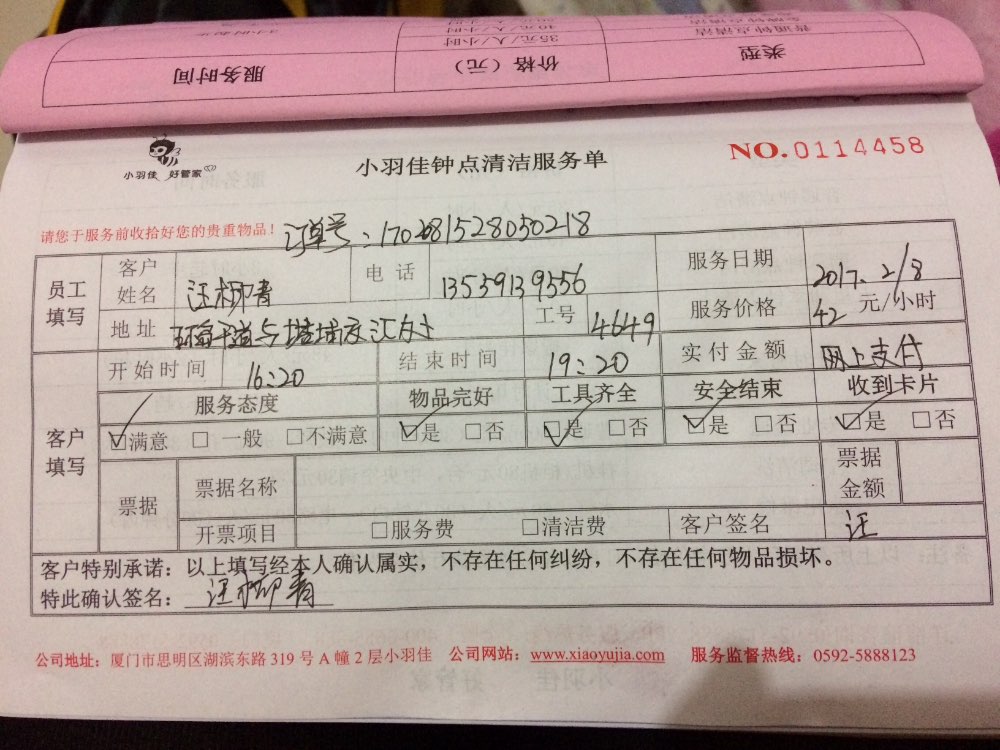 服务时间 价格（元） 类型
35元/人/小时 普通钟点清洁
小羽佳 好管家
小羽佳钟点清洁服务单
NO.0114458
请您于服务前收拾好您的贵重物品！ 订单号：1702081528050218
员工填写 客户姓名 汪柳青 电话 13559139556 服务日期 2017.2/8
地址 工号 4649 服务价格 42 元/小时
客户填写 开始时间 16:20 结束时间 19:20 实付金额 网上支付
服务态度 物品完好 工具齐全 安全结束 收到卡片
☑满意 □ 一般 □不满意 ☑是 □否 ☑是 □否 ☑是 □否 ☑是 □否
票据 票据名称 票据金额
开票项目 □服务费 □清洁费 客户签名 汪
客户特别承诺：以上填写经本人确认属实，不存在任何纠纷，不存在任何物品损坏。
特此确认签名：汪柳青
公司地址：厦门市思明区湖滨东路 319 号 A 幢 2 层小羽佳 公司网站：www.xiaoyujia.com 服务监督热线：0592-5888123